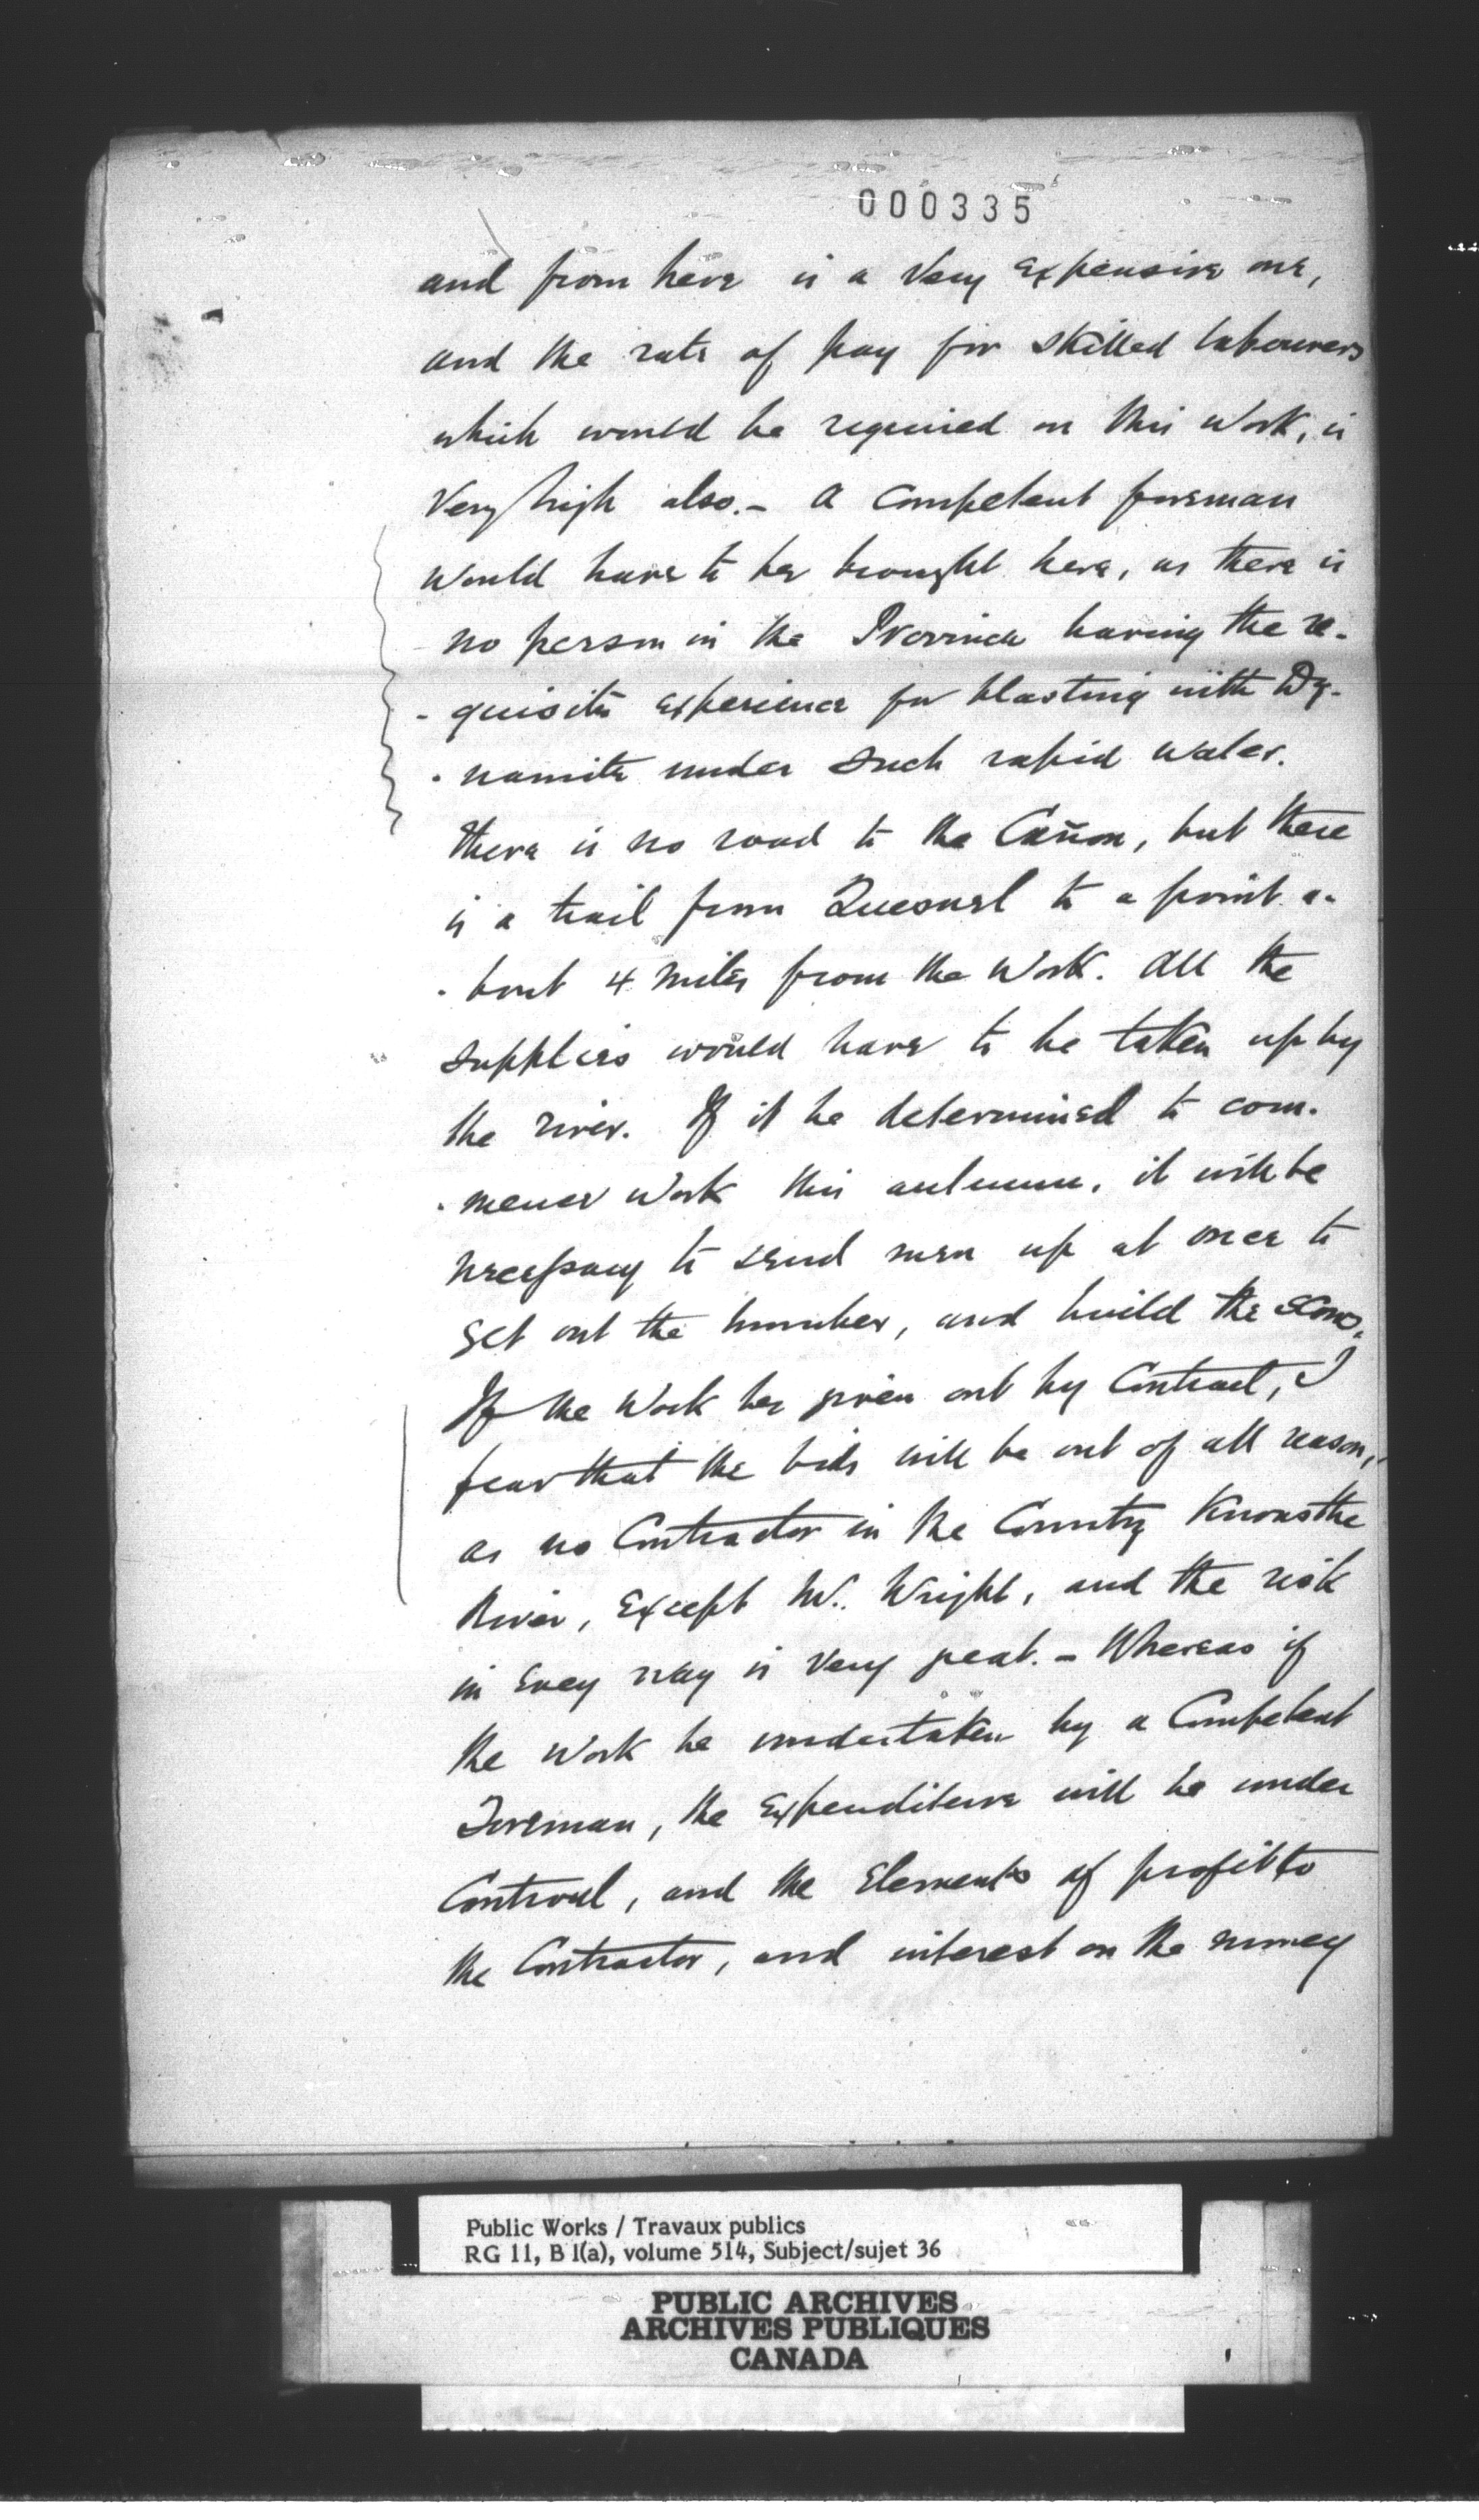 000335
and from here is a very expensive one,
and the rate of pay for skilled labourers
which would be required on this work, is
very high also. - A competent foreman
would have to be brought here, as there is
no person in the Province having the re-
- quisite experience for blasting with Dy-
- namite under such rapid water.
There is no road to the Cañon, but there
is a trail from Quesnel to a point a-
- bout 4 miles from the work. All the
supplies would have to be taken up by
the river. If it be determined to com-
- mence work this autumn, it will be
necessary to send men up at once to
get out the lumber, and build the scows.
If the work be given out by Contract, I
fear that the bids will be out of all reason,
as no Contractor in the Country knows the
River, except Mr. Wright, and the risk
in every way is very great. - Whereas if
the work be undertaken by a Competent
Foreman, the expenditure will be under
Control, and the elements of profit to
the Contractor, and interest on the money
Public Works / Travaux publics
RG 11, B 1(a), volume 514, Subject/sujet 36
PUBLIC ARCHIVES
ARCHIVES PUBLIQUES
CANADA